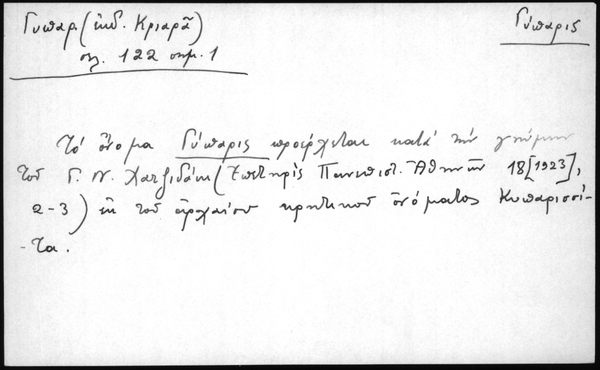 Γυπαρ (ἐκδ. Κριαρᾶ)
σελ. 122 σημ. 1
Γύπαρις
Τό ὄνομα Γύπαρις προέρχεται κατά τήν γνώμην
τοῦ Γ. Ν. Χατζιδάκι (Ἐπετηρίς Πανεπιστ. Ἀθηνῶν 18 [1923],
2-3) ἐκ τοῦ ἀρχαίου κρητικοῦ ὀνόματος Κυπαρισσί-
-τα.